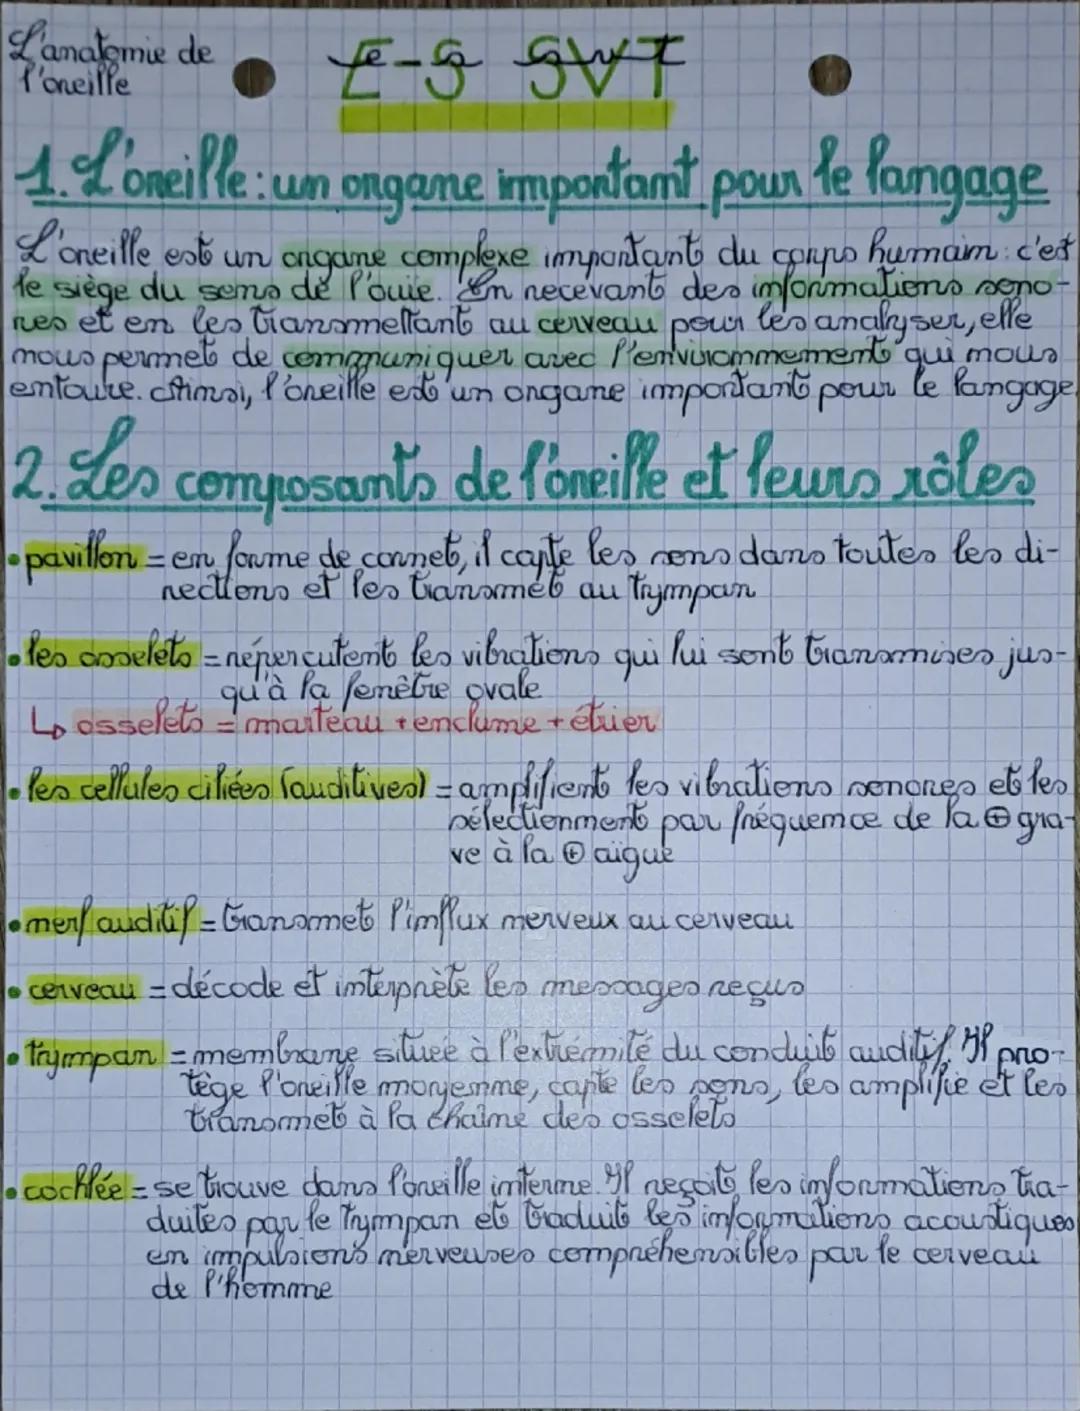 L'anatomie de
l'oreille
E-S SVT
1. L'oreille : un organe important pour le langage
L'oreille est un organe complexe important du corps humain : c'est
le siège du sens de l'ouïe. En recevant des informations sono-
res et en les transmettant au cerveau pour les analyser, elle
nous permet de communiquer avec l'environnement qui nous
entoure. Ainsi, l'oreille est un organe important pour le langage.
2. Les composants de l'oreille et leurs rôles
• pavillon = en forme de cornet, il capte les sons dans toutes les di-
rections et les transmet au tympan
• les osselets = répercutent les vibrations qui lui sont transmises jus-
qu'à la fenêtre ovale
↳ osselets = marteau + enclume + étrier
• les cellules ciliées (auditives) = amplifient les vibrations sonores et les
sélectionnent par fréquence de la ⊕ gra-
ve à la ⊕ aigue
• nerf auditif = transmet l'influx nerveux au cerveau
• cerveau = décode et interprète les messages reçus
• tympan = membrane située à l'extrémité du conduit auditif. Il pro-
tège l'oreille moyenne, capte les sons, les amplifie et les
transmet à la chaîne des osselets
• cochlée = se trouve dans l'oreille interne. Il reçoit les informations tra-
duites par le tympan et traduit les informations acoustiques
en impulsions nerveuses compréhensibles par le cerveau
de l'homme